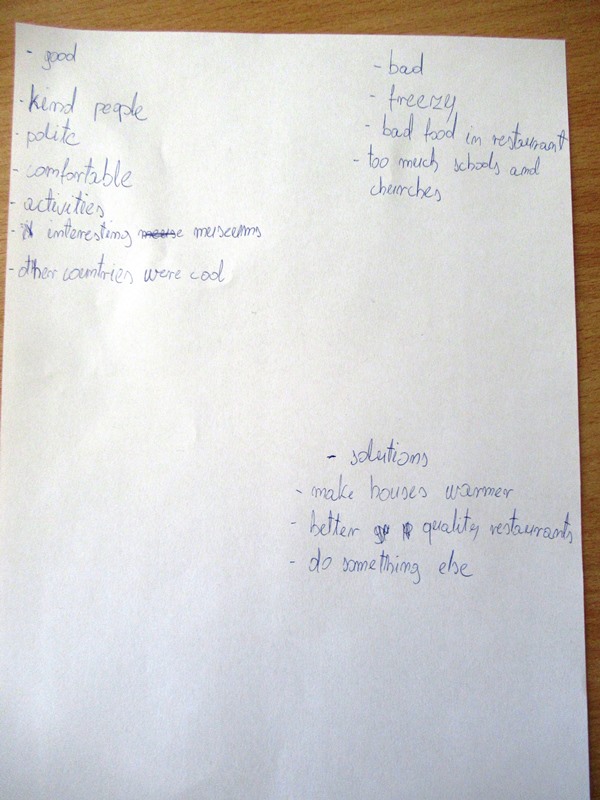 - good
- kind people
- polite
- comfortable
- activities
- interesting museums
- other countries were cool
- bad
- freezy
- bad food in restaurant
- too much schools and
churches
- solutions
- make houses warmer
- better quality restaurants
- do something else